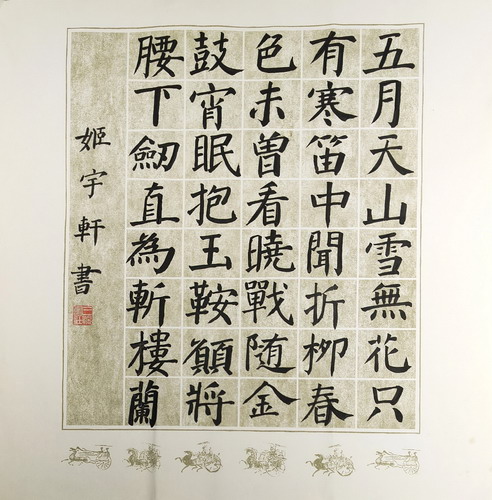 五月天山雪無花只
有寒笛中聞折柳春
色未曾看曉戰随金
鼓宵眠抱玉鞍願將
腰下劒直為斬樓蘭
姬宇軒書